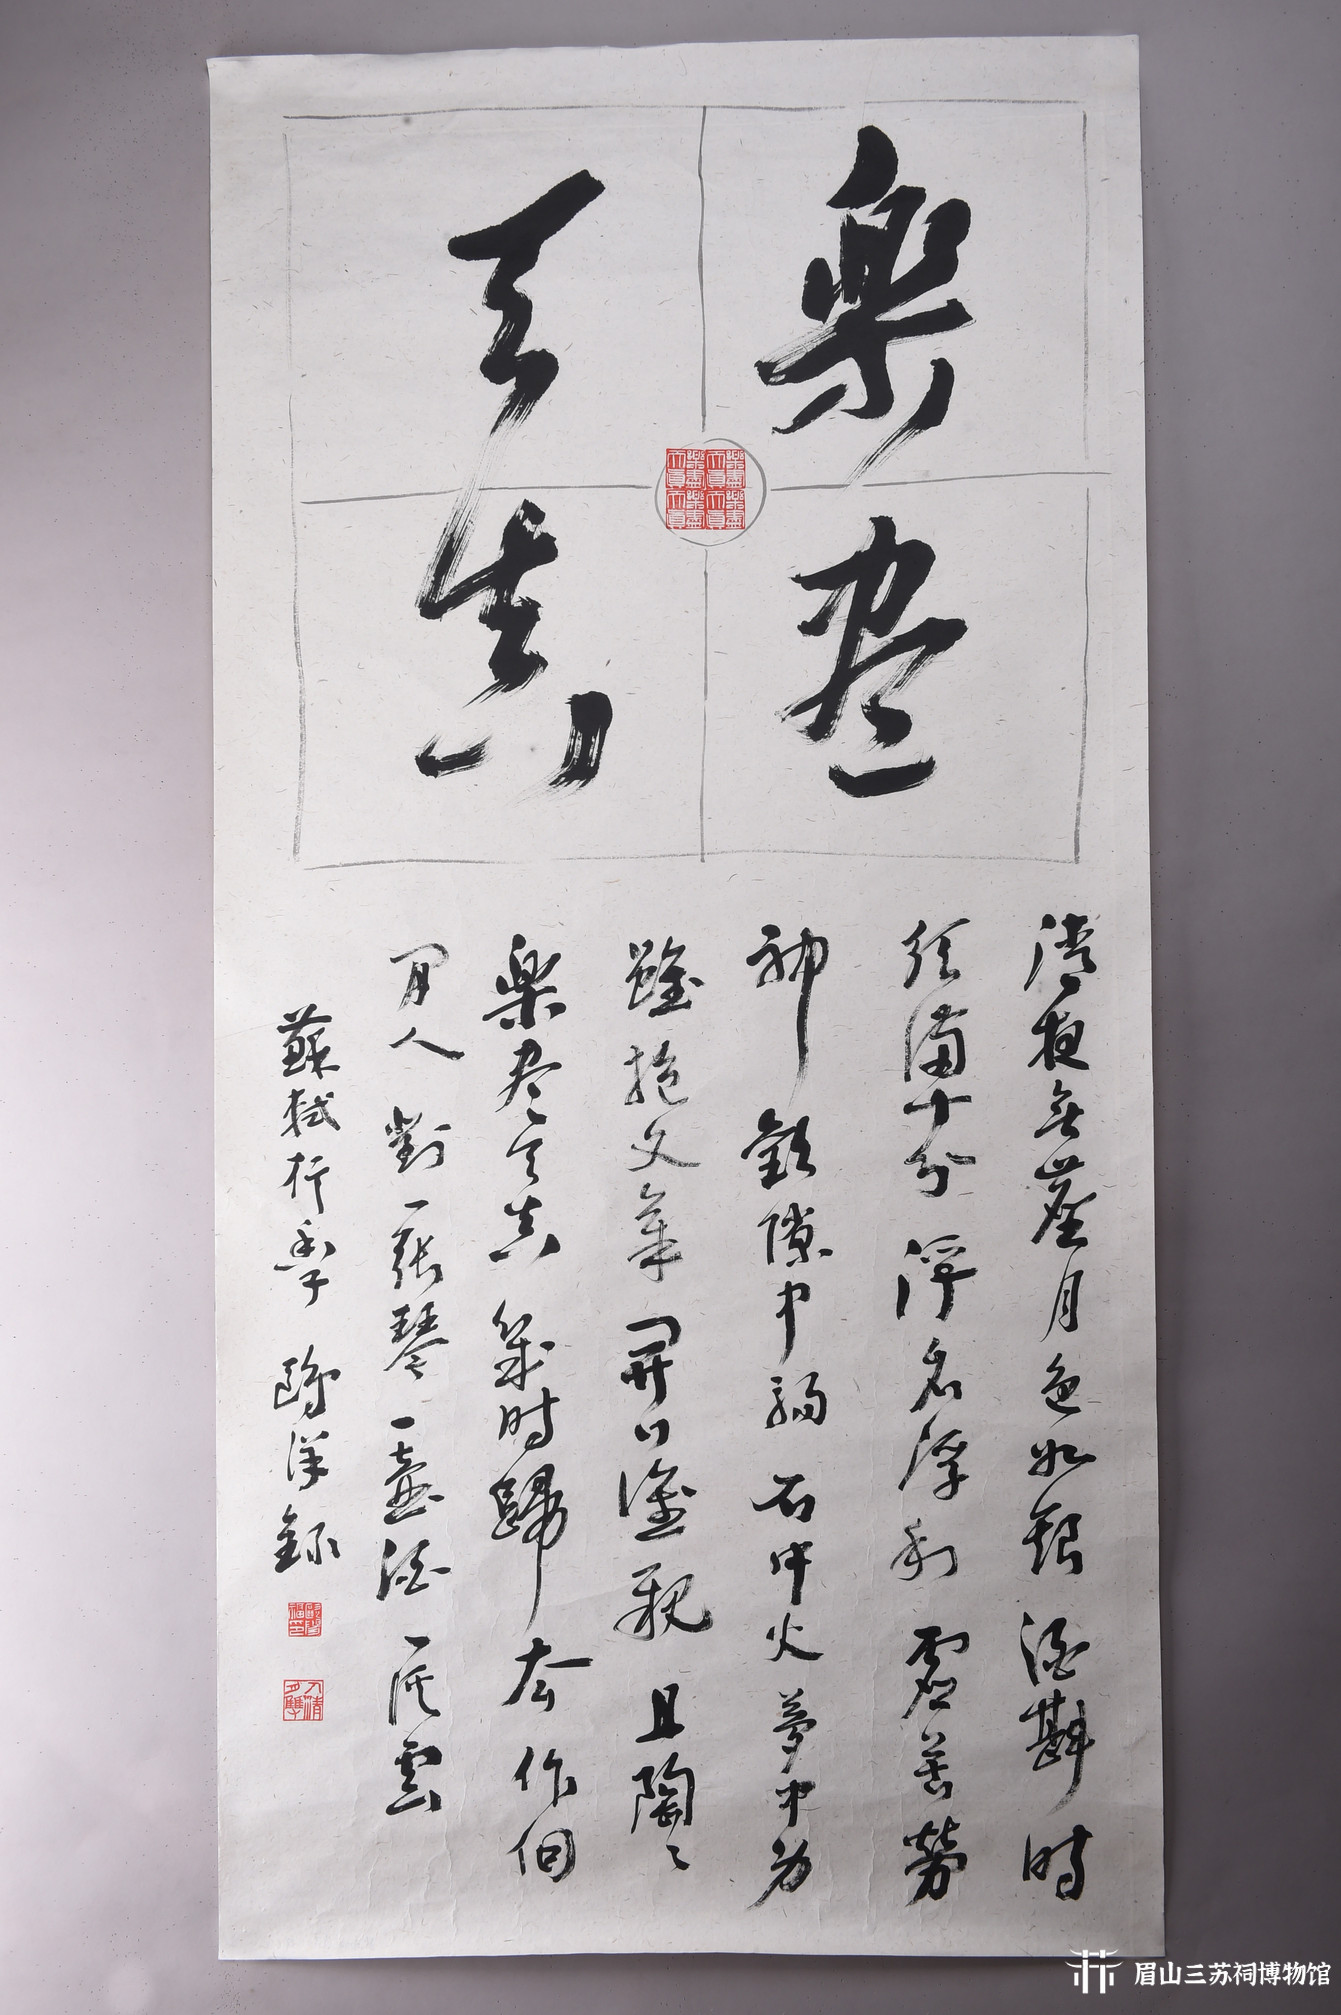 樂尽
天真
樂盡天真
清夜無塵月色如銀酒斟時
須滿十分浮名浮利虛苦勞
神歎隙中駒石中火夢中身
雖抱文章開口誰親且陶〻
樂尽天真幾時歸去作個
閒人對一張琴一壺酒一溪雲
蘇軾行香子 錄
眉山三苏祠博物馆